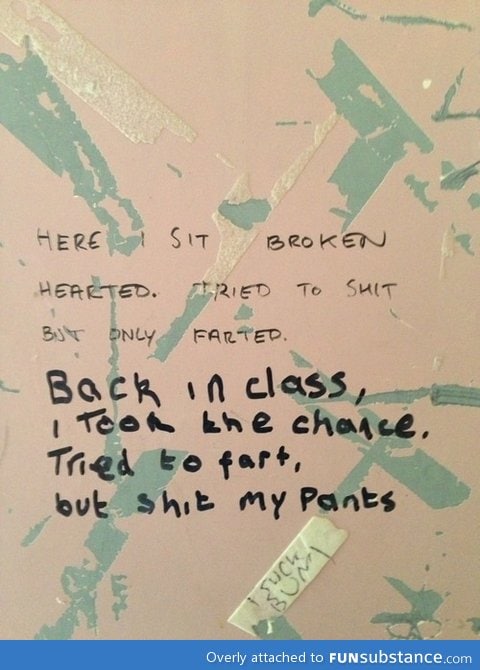 HERE I SIT BROKEN
HEARTED. TRIED TO SHIT
BUT ONLY FARTED.
Back in class,
i Took the chance.
Tried to fart,
but shit my Pants
I SUCK
BUM!
Overly attached to FUNsubstance.com